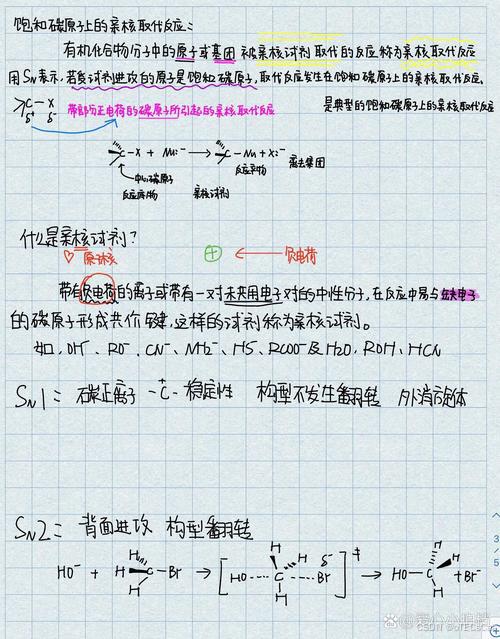 饱和碳原子上的亲核取代反应：
有机化合物分子中的原子或基团被亲核试剂取代的反应称为亲核取代反应
用SN表示，若受试剂进攻的原子是饱和碳原子，取代反应发生在饱和碳原子上的亲核取代反应。
C—X
δ+ δ-
带部分正电荷的碳原子所引起的亲核取代反应
是典型的饱和碳原子上的亲核取代反应
C—X + Nu:⁻ → C—Nu + X:⁻ 离去基团
中心碳原子
反应底物 亲核试剂 反应产物
什么是亲核试剂？
♡原子核 ⊕ ← 负电荷
带有负电荷的离子或带有一对未共用电子对的中性分子，在反应中易与缺电子
的碳原子形成共价键，这样的试剂称为亲核试剂。
如，OH⁻、RO⁻、CN⁻、NH₂⁻、HS⁻、RCOO⁻及H₂O、ROH、HCN
SN1：碳正离子 -C⁺- 稳定性 构型不发生翻转 外消旋体
SN2：背面进攻 构型翻转
HO⁻ + H H H C—Br → [HO---C---Br H H H δ-]‡ → HO—C H H H + Br⁻
3
/
5
CSDN